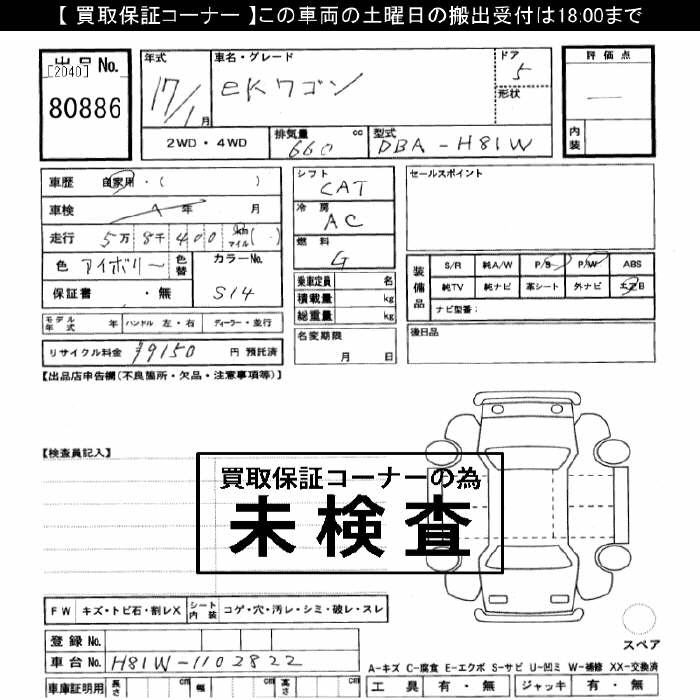 【 買取保証コーナー 】この車両の土曜日の搬出受付は18:00まで
出品 No.
[2040]
80886
年式
17/1月
車名・グレード
eKワゴン
ドア
5
形状
評価点
内装
2WD・4WD
排気量 660 cc
型式 DBA-H81W
車歴 自家用・( )
車検 年 月
走行 5万8千400 km マイル( )
色 アイボリー 色替
カラーNo. S14
保証書 ・無
シフト CAT
冷房 AC
燃料 G
乗車定員 名
積載量 kg
総重量 kg
名変期限 月 日
セールスポイント
装備品
S/R 純A/W P/S P/W ABS
純TV 純ナビ 革シート 外ナビ エアB
ナビ型番:
後日品
モデル年式 年 ハンドル 左・右 ディーラー・並行
リサイクル料金 9150 円 預託済
【出品店申告欄(不良箇所・欠品・注意事項等)】
【検査員記入】
買取保証コーナーの為
未検査
FW キズ・トビ石・割レX シート内装 コゲ・穴・汚レ・シミ・破レ・スレ
登録 No.
車台 No. H81W-1102822
車庫証明用 長さ cm 幅 cm 高さ cm
スペア
A-キズ C-腐食 E-エクボ S-サビ U-凹ミ W-補修 XX-交換済
工具 有・無 ジャッキ 有・無